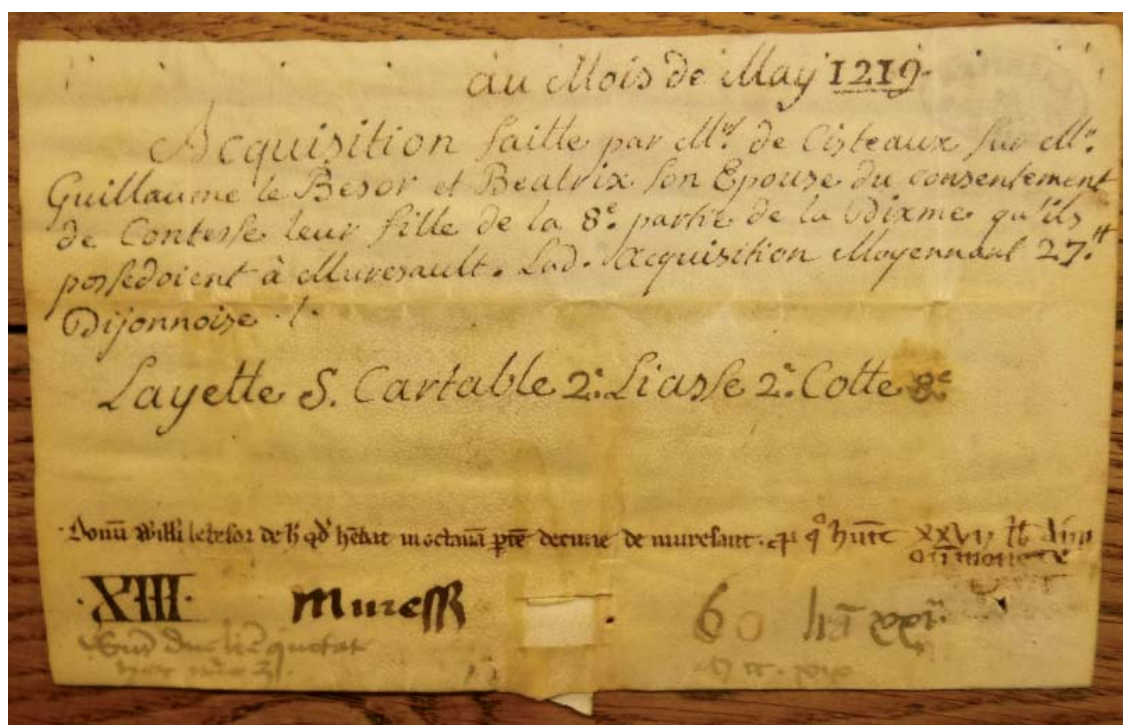 au Mois de May 1219.
Acquisition faitte par Mrs. de Cisteaux sur Mr.
Guillaume le Besor et Beatrix son Epouze du consentement
de Contesse leur fille de la 8e. partie de la Dixme qu'ils
possedoient à Muresault. Lad. Acquisition Moyennant 27.tt
Dijonnoise
Layette S. Cartable 2e. Liasse 2e. Cotte 8e
Donū Willi le besor de h qd hēbat in octauā ptē decime de muresaut.
monete
·XIII· Muress
60 xxi